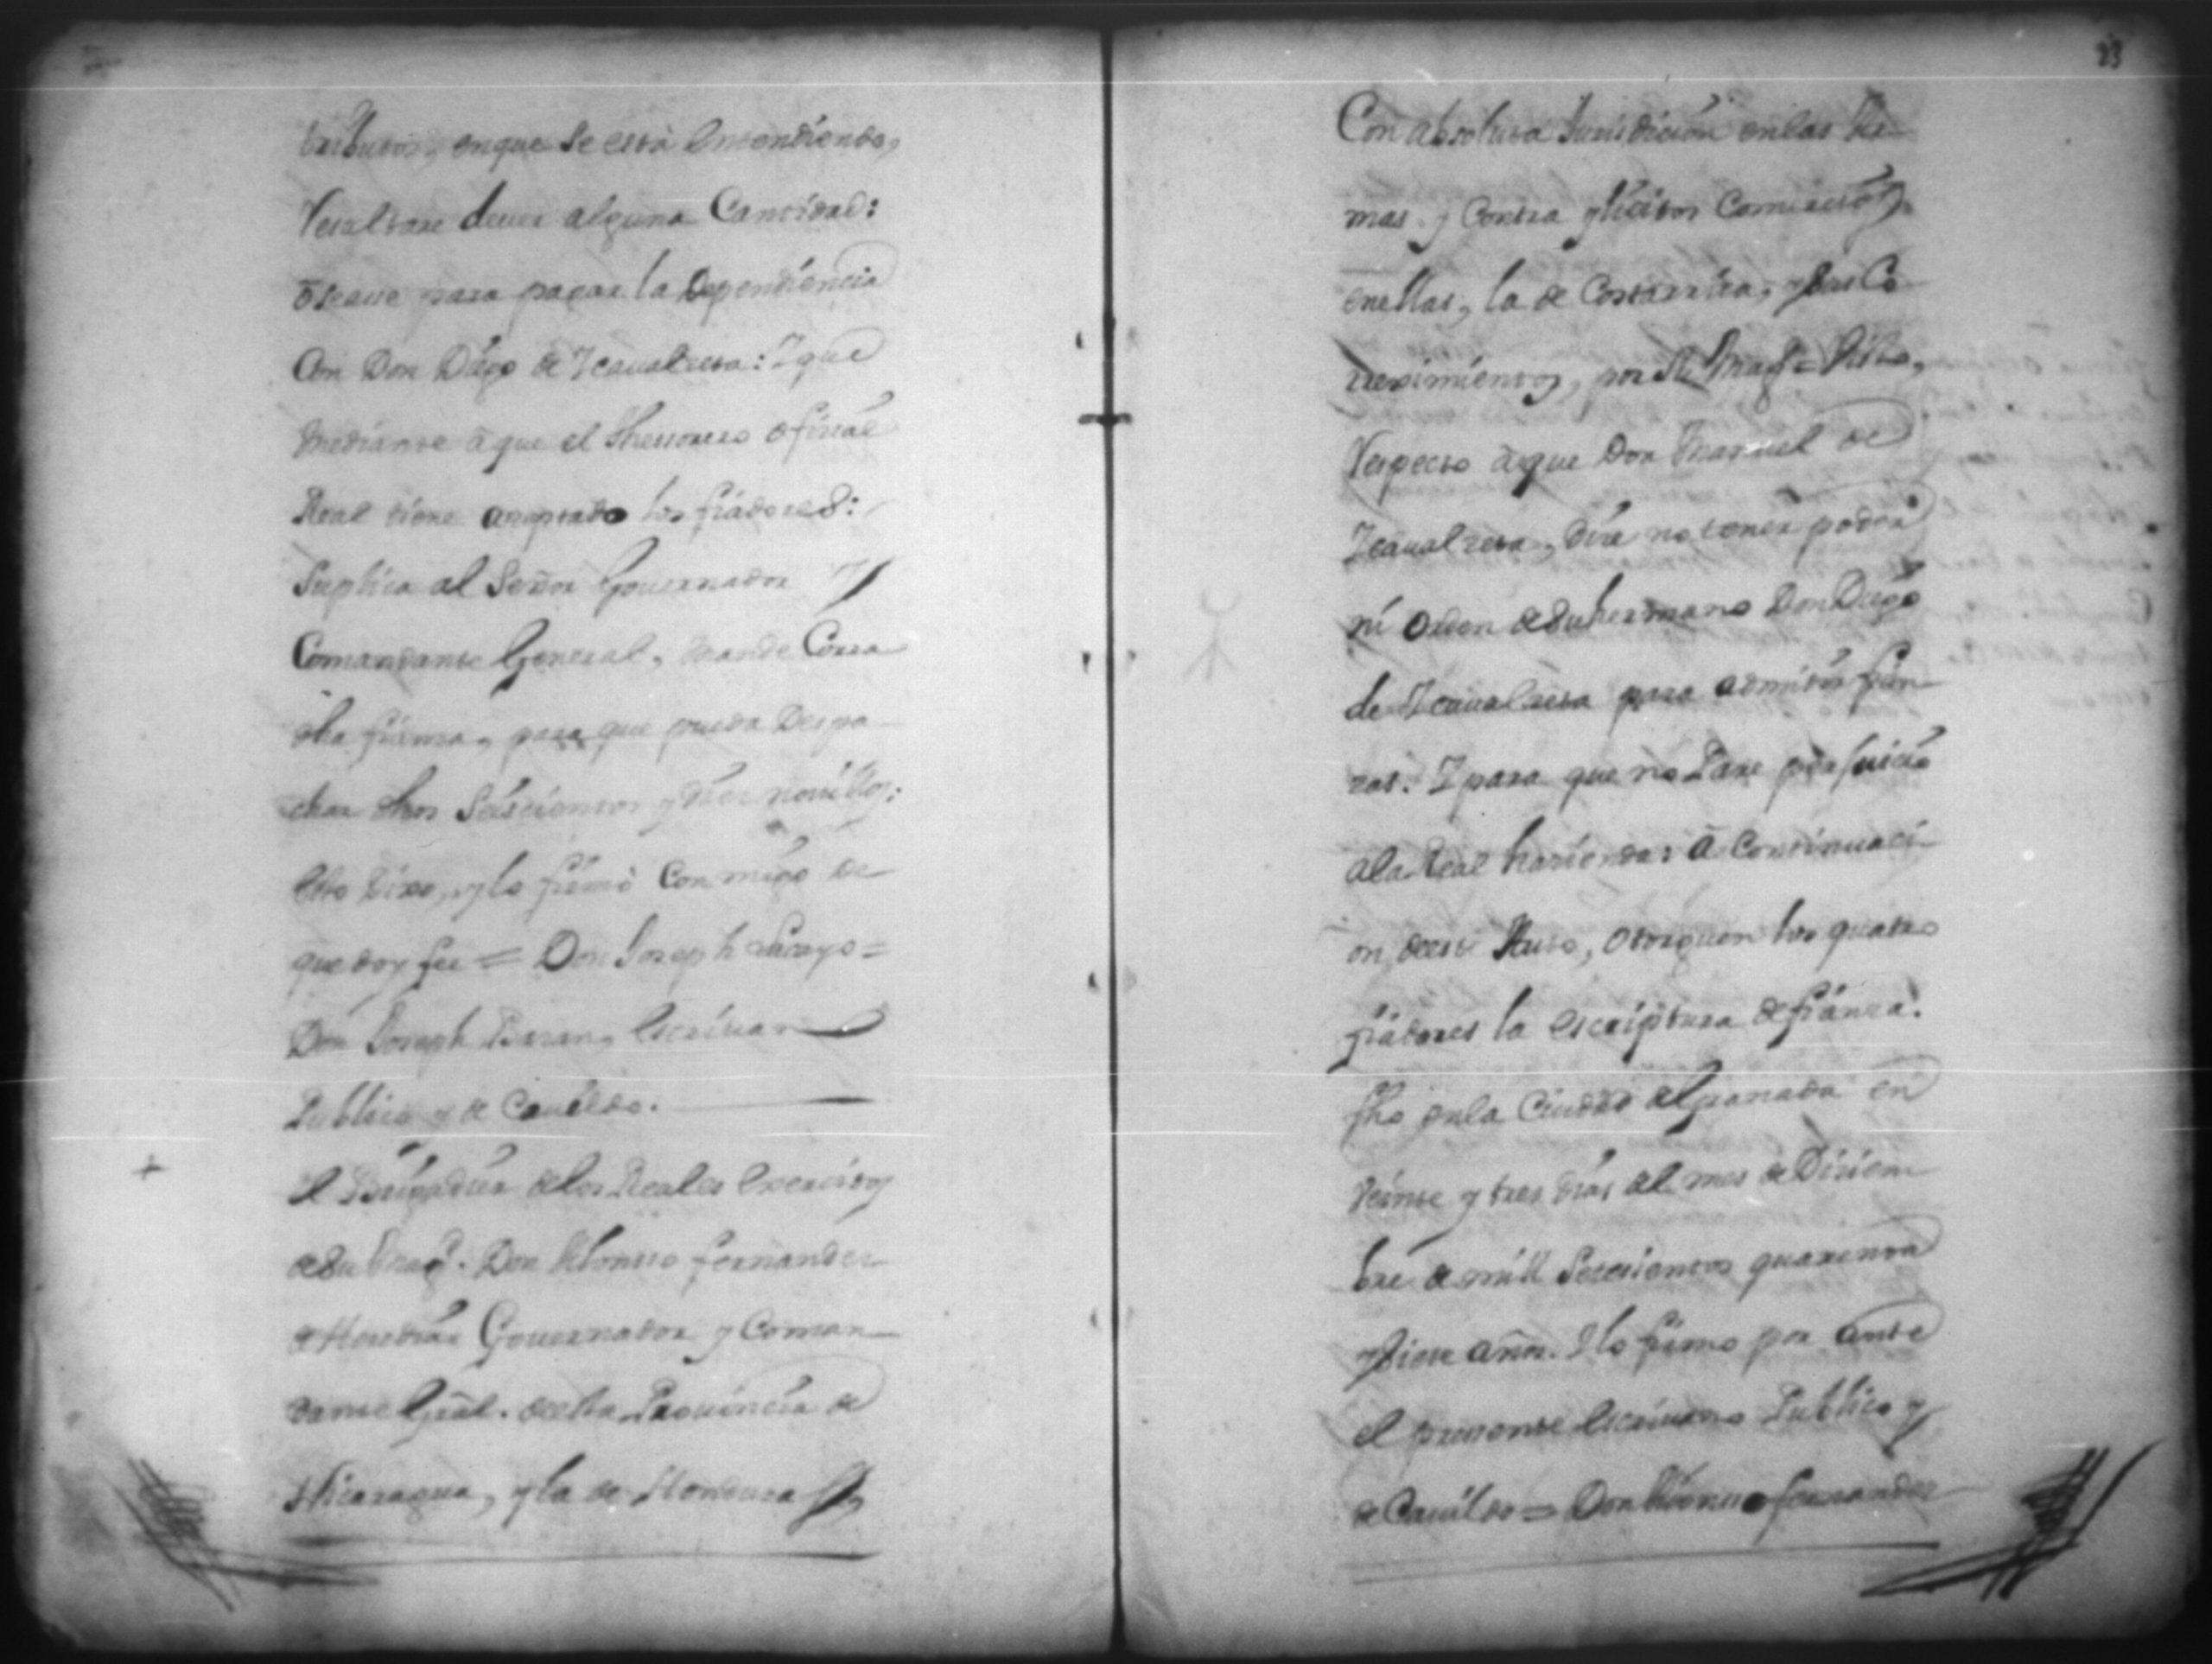 tributos, enque se està entendiendo,
Resultare dever alguna Cantidad:
para pagar la Dependiencia
Con Don Diego de Ycaualzeta: Y que
Mediante à que el Thessorero ofizial
Real tiene azeptado los fiadores:
Suplica al Señor Governador y
Comandante General, mande Corra
dha fianza, para que pueda Despa-
char dhos Seiscientos y diez novillos:
Esto Dixo, y lo firmò Con migo de
que doy fee = Don Joseph Lacayo =
Don Joseph Baran, Escrivano
Publico y de Cavildo.
El Brigadier delos Reales Exercitos
de Su Magd. Don Alonsso fernandez
de Heredia Governador y Coman-
dante Gral. de esta Provincia de
Nicaragua, y la de Honduras
23
Con absoluta Jurisdicion enlas Ar-
mas y Contra ylicitos Comercios
enellas, la de Costarrica, y sus Co-
rrexímientos, por Su Magd = Dixo,
Respecto à que Don Manuel de
Ycaualzeta, dize no tener poder
ni orden de Su hermano Don Diego
de Ycaualzeta para admitir fian-
zas: Y para que no Pare perjuicio
ala Real hazienda: à Continuaci-
on deeste Auto, Otorguen los quatro
fiadores la escriptura de fianza.
fho enla Ciudad de Granada en
veinte y tres dias del mes de Diziem-
bre de mill Setecientos quarenta
y siete años. Y lo firmo por ante
el pressente Escrivano Publico y
de Cavildo = Don Alonsso fernandez